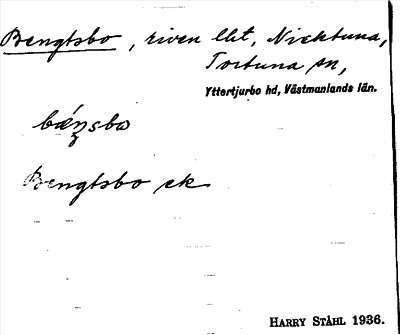 Bengtsbo, riven lht, Nicktuna,
Tortuna sn,
Yttertjurbo hd, Västmanlands län.
Bengtsbo ek
HARRY STÅHL 1936.